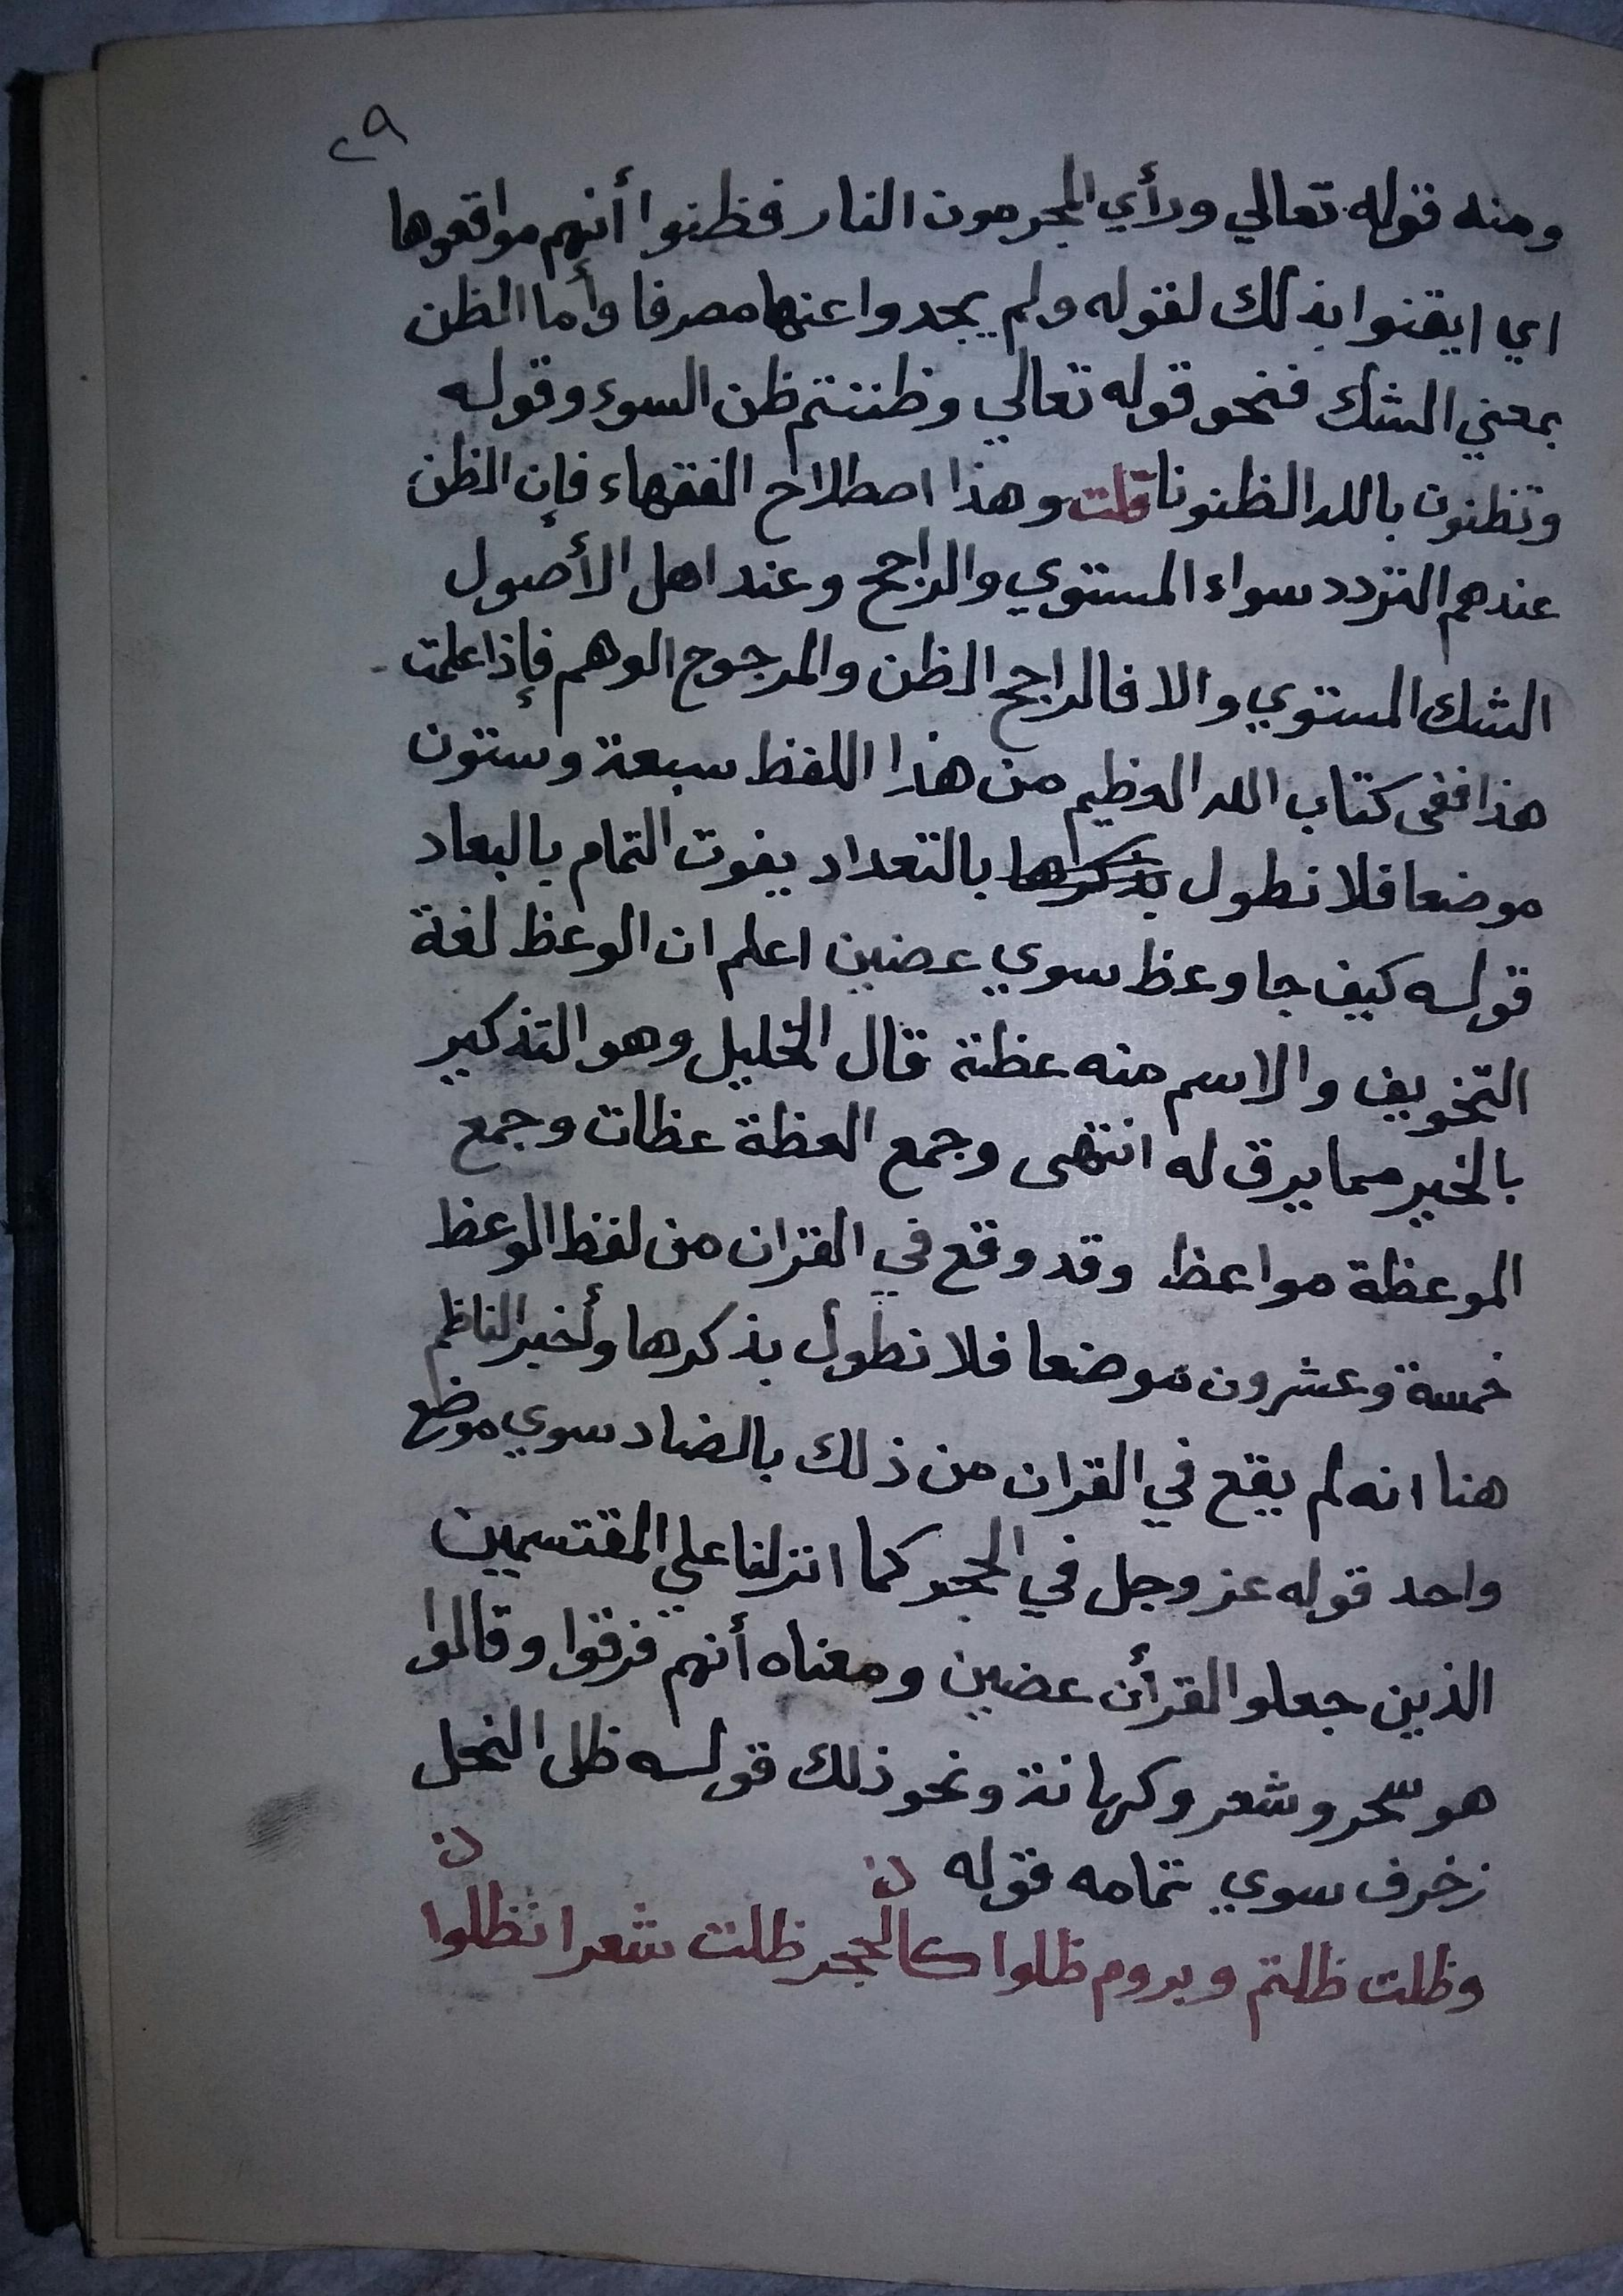 ٢٩
ومنه قوله تعالي ورأي المجرمون النار فظنوا أنهم مواقعوها
اي ايقنوا بذلك لقوله ولم يجدوا عنها مصرفا وأما الظن
بمعني الشك فنحو قوله تعالي وظننتم ظن السوء وقوله
وتظنون بالله الظنونا قلت وهذا اصطلاح الفقهاء فإن الظن
عندهم التردد سواء المستوي والراجح وعند اهل الأصول
الشك المستوي والا فالراجح الظن والمرجوح الوهم فإذا علمت
هذا ففى كتاب الله العظيم من هذا اللفظ سبعة وستون
موضعا فلا نطول بذكرها بالتعداد يفوت التمام بالبعاد
قوله كيف جا وعظ سوي عضين اعلم ان الوعظ لغة
التخويف والاسم منه عظة قال الخليل وهو التذكير
بالخير مما يرق له انتهى وجمع العظة عظات وجمع
الموعظة مواعظ وقد وقع في القران من لفظ الوعظ
خمسة وعشرون موضعا فلا نطول بذكرها وأخبر الناظم
هنا انه لم يقع في القران من ذلك بالضاد سوي موضع
واحد قوله عز وجل في الحجر كما انزلنا علي المقتسمين
الذين جعلوا القرأن عضين ومعناه أنهم فرقوا وقالوا
هو سحر وشعر وكهانة ونحو ذلك قوله ظل النحل
زخرف سوي تمامه قوله ن ن
وظلت ظلتم وبروم ظلوا كالحجر ظلت شعرا نظلوا